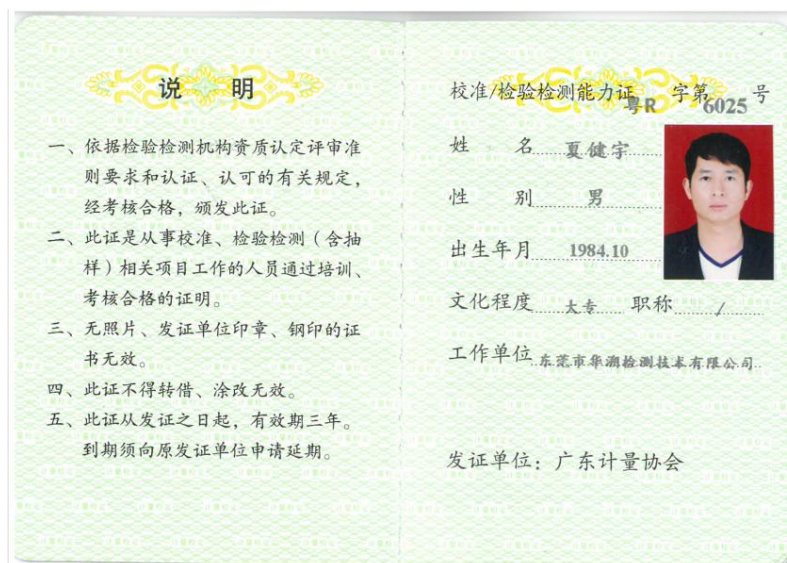 说 明
一、依据检验检测机构资质认定评审准
则要求和认证、认可的有关规定，
经考核合格，颁发此证。
二、此证是从事校准、检验检测（含抽
样）相关项目工作的人员通过培训、
考核合格的证明。
三、无照片、发证单位印章、钢印的证
书无效。
四、此证不得转借、涂改无效。
五、此证从发证之日起，有效期三年。
到期须向原发证单位申请延期。
校准/检验检测能力证粤R 字第6025 号
姓 名 夏健宇
性 别 男
出生年月 1984.10
文化程度 大专 职称 /
工作单位 东莞市华溯检测技术有限公司
发证单位：广东计量协会